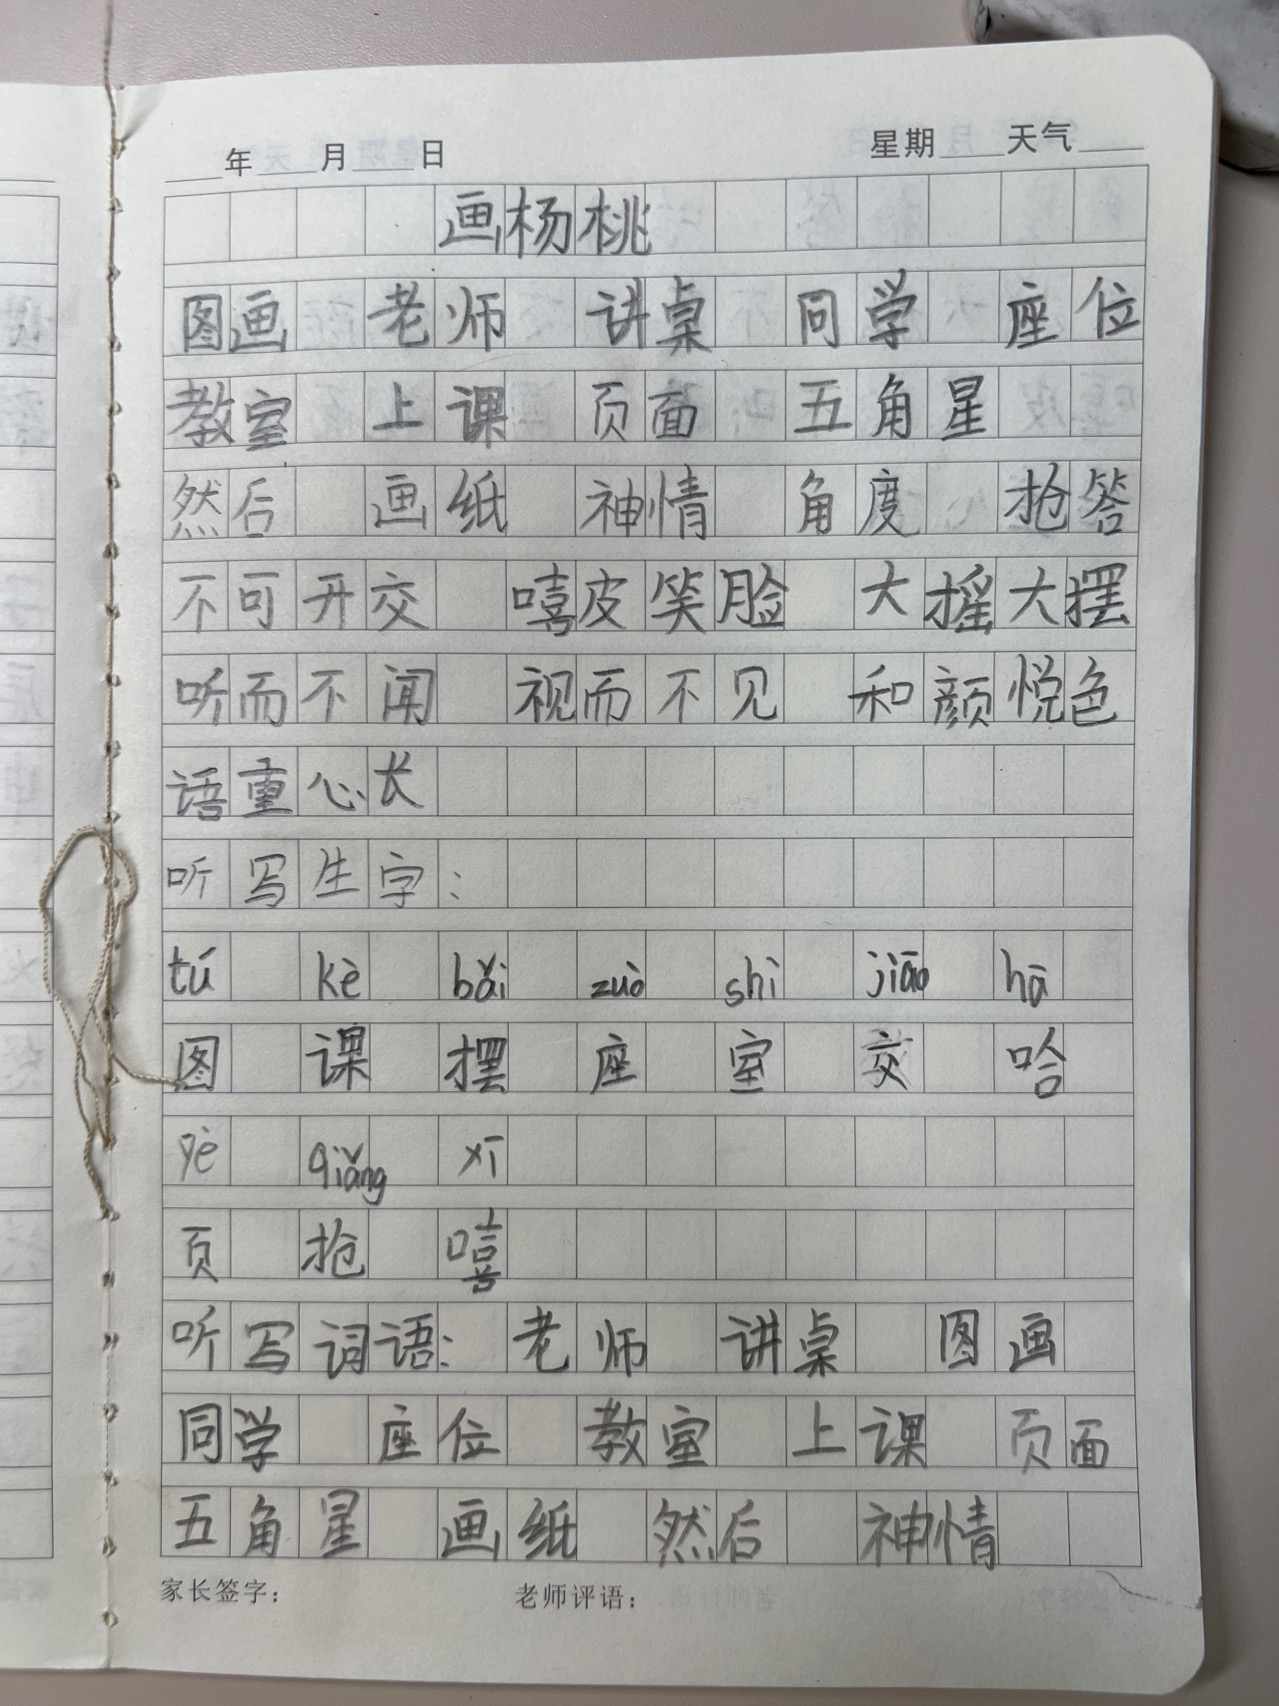 年 月 日 星期 天气
画杨桃
图画 老师 讲桌 同学 座位
教室 上课 页面 五角星
然后 画纸 神情 角度 抢答
不可开交 嘻皮笑脸 大摇大摆
听而不闻 视而不见 和颜悦色
语重心长
听写生字：
tú kè bǎi zuò shì jiāo hā
图 课 摆 座 室 交 哈
yè qiǎng xī
页 抢 嘻
听写词语：老师 讲桌 图画
同学 座位 教室 上课 页面
五角星 画纸 然后 神情
家长签字： 老师评语：